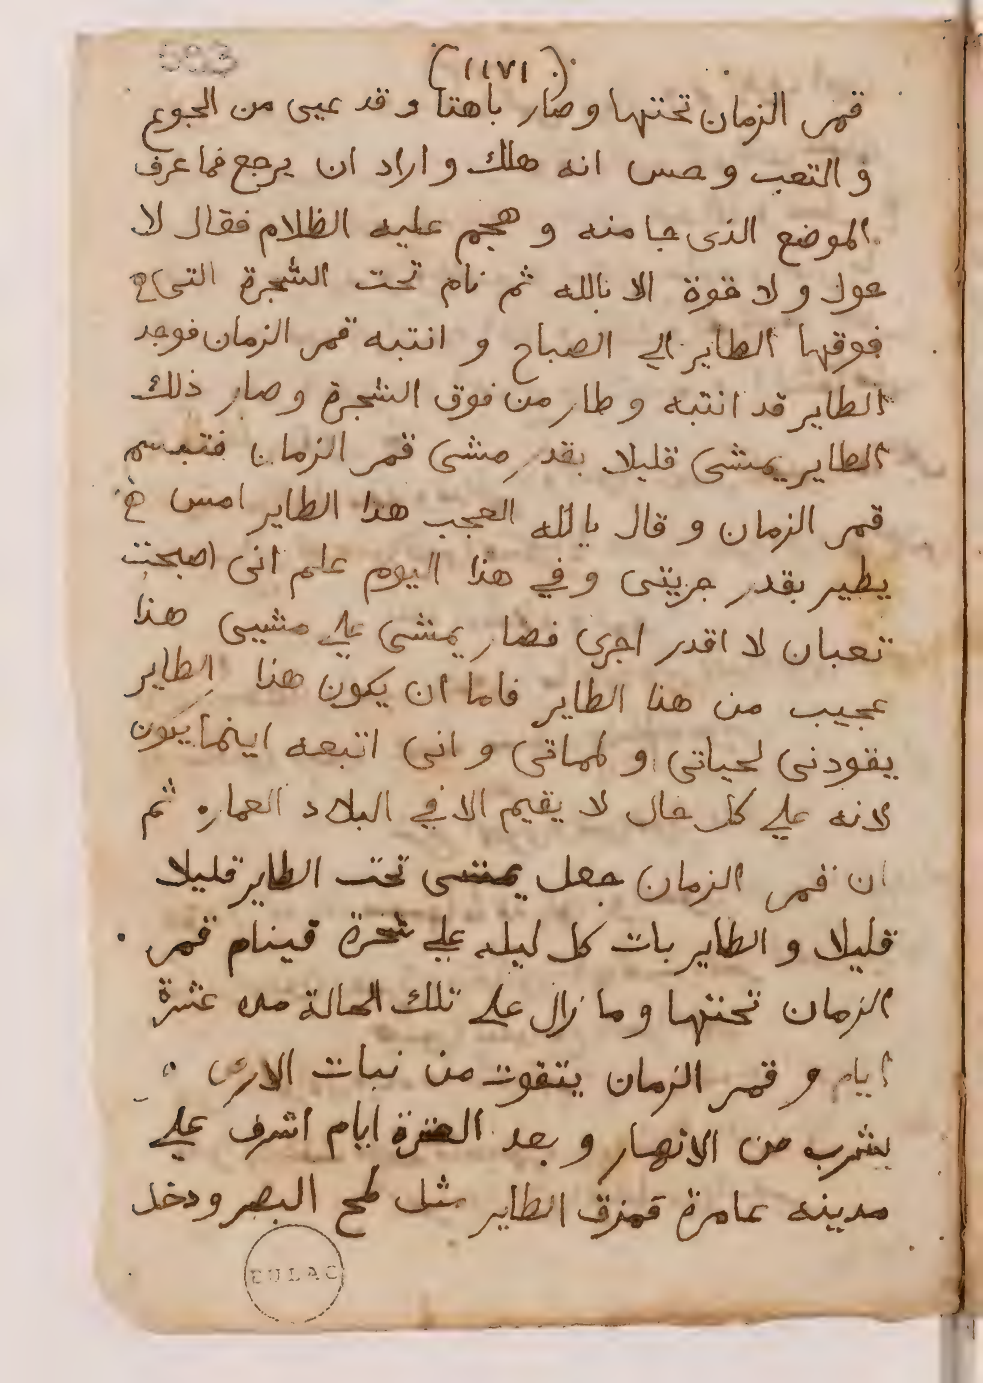 593
(١١٧١)
قمر الزمان تحتها وصار باهتا وقد عيى من الجوع
و التعب وحس انه هلك واراد ان يرجع فما عرف
الموضع الذى جا منه و هجم عليه الظلام فقال لا
حول ولا قوة الا بالله ثم نام تحت الشجرة التى
فوقها الطاير الي الصباح و انتبه قمر الزمان فوجد
الطاير قد انتبه و طار من فوق الشجرة وصار ذلك
الطاير يمشى قليلا بقدر مشى قمر الزمان فتبسم
قمر الزمان و قال يالله العجب هدا الطاير امس
يطير بقدر جريتى وفي هذا اليوم علم انى اصبحت
تعبان لا اقدر اجرى فصار يمشى علي مشيى هذا
عجيب من هذا الطاير فاما ان يكون هذا الطاير
يقودنى لحياتى او لمماتى و انى اتبعه اينما يكون
لانه علي كل حال لا يقيم الا في البلاد العماره ثم
ان قمر الزمان جعل يمشى تحت الطاير قليلا
قليلا و الطاير بات كل ليله علي شجرة فينام قمر
الزمان تحتها وما زال علي تلك الحالة مده عشرة
ايام و قمر الزمان يتقوت من نبات الارض
يشرب من الانهار و بعد العشرة ايام اشرف علي
مدينه عامرة فمزق الطاير مثل لمح البصر ودخل
BULAC